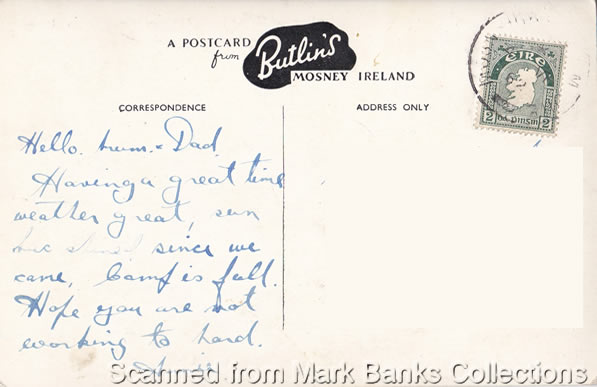 A POSTCARD
from
Butlin's
MOSNEY IRELAND
CORRESPONDENCE
ADDRESS ONLY
ÉIRE
2 dá pinsin 2
Hello. mum. & Dad
Having a great time
weather great, sun
since we
came, Camp is full.
Hope you are not
working to hard.
Scanned from Mark Banks Collections